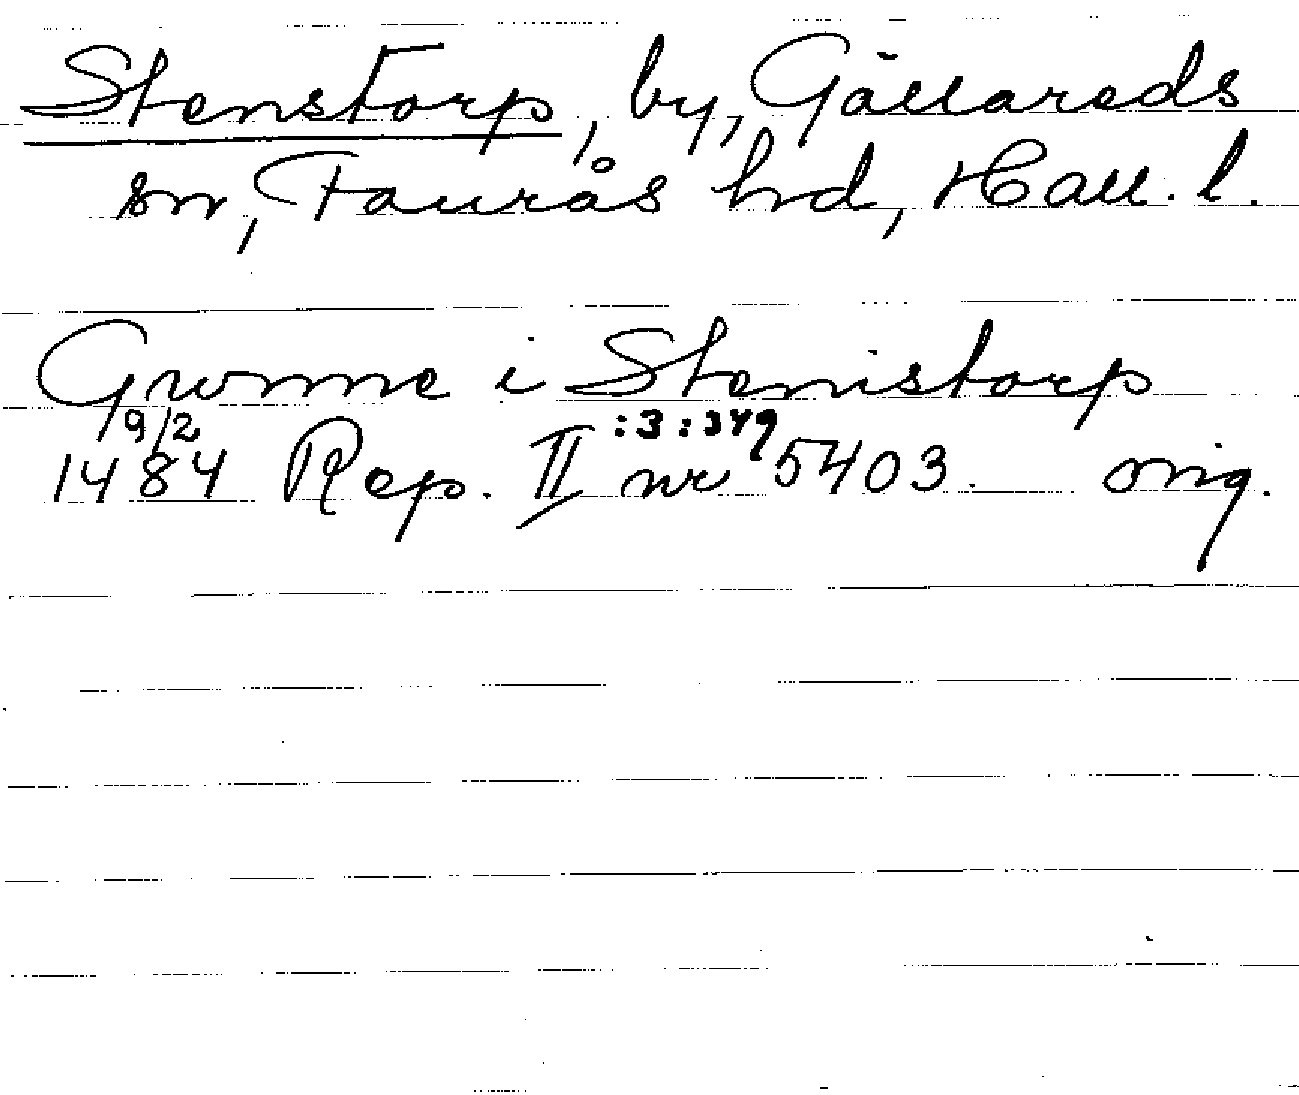 Stenstorp, by, Gällareds
sn, Faurås hd, Hall. l.
Gwnne i Stenistorp
9/2 :3:349
1484 Rep. II nr 5403. orig.